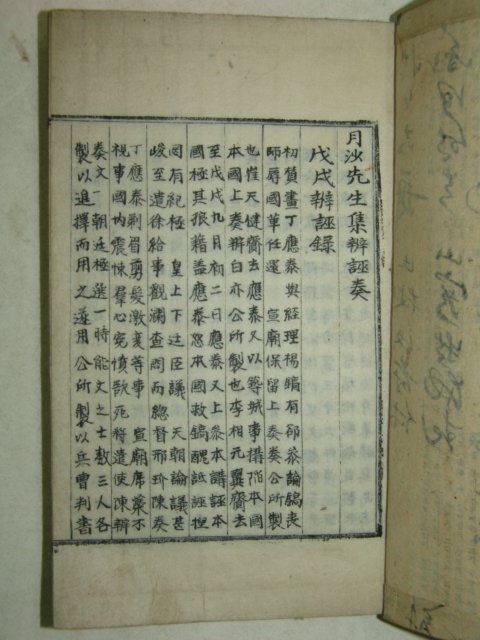 月沙先生集辨誣奏
戊戌辨誣錄
初贊畫丁應泰與經理楊鎬有郤參論鎬喪
師辱國革任還 宣廟保留上奏奏公所製
也崔天健齎去應泰又以築城事搆陷本國
本國上奏辨白亦公所製也李相元翼齎去
至戊戌九月初二日應泰又上參本讒誣本
國極其狼藉盖應泰怒本國救鎬醜詆誣捏
罔有紀極 皇上下廷臣議 天朝論議甚
峻至遣徐給事觀瀾查問而總督邢玠陳奏
丁應泰剃眉剪髮激変等事 宣廟席藁不
視事國內震悚羣心寃憤欲死將遣使陳辨
奏文 朝廷極選一時能文之士数三人各
製以進擇而用之遂用公所製以兵曹判書